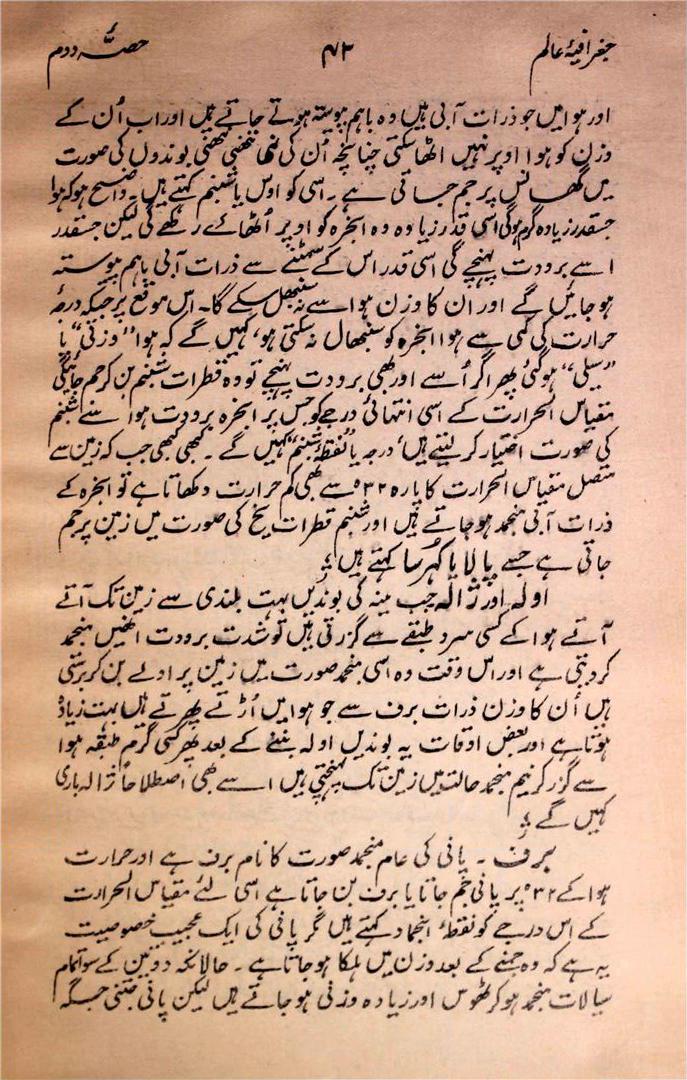 جغرافیۂ عالم ۴۳ حصّہ دوم
اور ہوا میں جو ذرات آبی ہیں وہ باہم پیوستہ ہوتے جاتے ہیں اور اب اُن کے
وزن کو ہوا اوپر نہیں اٹھا سکتی چنانچہ اُن کی ننھی ننھی بوندوں کی صورت
میں گھانس پر جم جاتی ہے۔ اسی کو اوس یا شبنم کہتے ہیں۔ واضح ہو کہ ہوا
جسقدر زیادہ گرم ہوگی اسی قدر زیادہ وہ ابخرہ کو اوپر اُٹھائے رکھے گی لیکن جسقدر
اسے برودت پہنچے گی اسی قدر اس کے سمٹنے سے ذرات آبی باہم پیوستہ
ہو جائیں گے اور ان کا وزن ہوا سے نہ سنبھل سکے گا۔ اس موقع پر جبکہ درجۂ
حرارت کی کمی سے ہوا ابخرہ کو سنبھال نہ سکتی ہو، کہیں گے کہ ہوا "وزنی" یا
"سیلی" ہوگئی پھر اگر اُسے اور بھی برودت پہنچے تو وہ قطرات شبنم بن کر جم جائیگی
مقیاس الحرارت کے اسی انتہائی درجے کو جس پر ابخرہ برودت ہوا سے شبنم
کی صورت اختیار کر لیتے ہیں، درجہ یا "نقطۂ شبنم" کہیں گے۔ کبھی کبھی جب کہ زمین سے
متصل مقیاس الحرارت کا پارہ ۳۲° سے بھی کم حرارت دکھاتا ہے تو ابخرہ کے
ذرات آبی منجمد ہو جاتے ہیں اور شبنم قطرات یخ کی صورت میں زمین پر جم
جاتی ہے جسے پالا یا کہرسا کہتے ہیں؛
اولہ اور ژالہ جب مینہ کی بوندیں بہت بلندی سے زمین تک آتے
آتے ہوا کے کسی سرد طبقے سے گزرتی ہیں تو شدت برودت انھیں منجمد
کر دیتی ہے اور اس وقت وہ اسی منجمد صورت میں زمین پر اولے بن کر برستی
ہیں اُن کا وزن ذرات برف سے جو ہوا میں اُڑتے پھرتے ہیں بہت زیادہ
ہوتا ہے اور بعض اوقات یہ بوندیں اولہ بننے کے بعد پھر کسی گرم طبقہ ہوا
سے گزر کر نیم منجمد حالت میں زمین تک پہنچتی ہیں اسے بھی اصطلاحاً ژالہ باری
کہیں گے؛
برف ۔ پانی کی عام منجمد صورت کا نام برف ہے اور حرارت
ہوا کے ۳۲° پر پانی جم جاتا یا برف بن جاتا ہے اسی لئے مقیاس الحرارت
کے اس درجے کو نقطۂ انجماد کہتے ہیں مگر پانی کی ایک عجیب خصوصیت
یہ ہے کہ وہ جمنے کے بعد وزن میں ہلکا ہو جاتا ہے۔ حالانکہ دو تین کے سوا تمام
سیالات منجمد ہو کر ٹھوس اور زیادہ وزنی ہو جاتے ہیں لیکن پانی جتنی جگہ